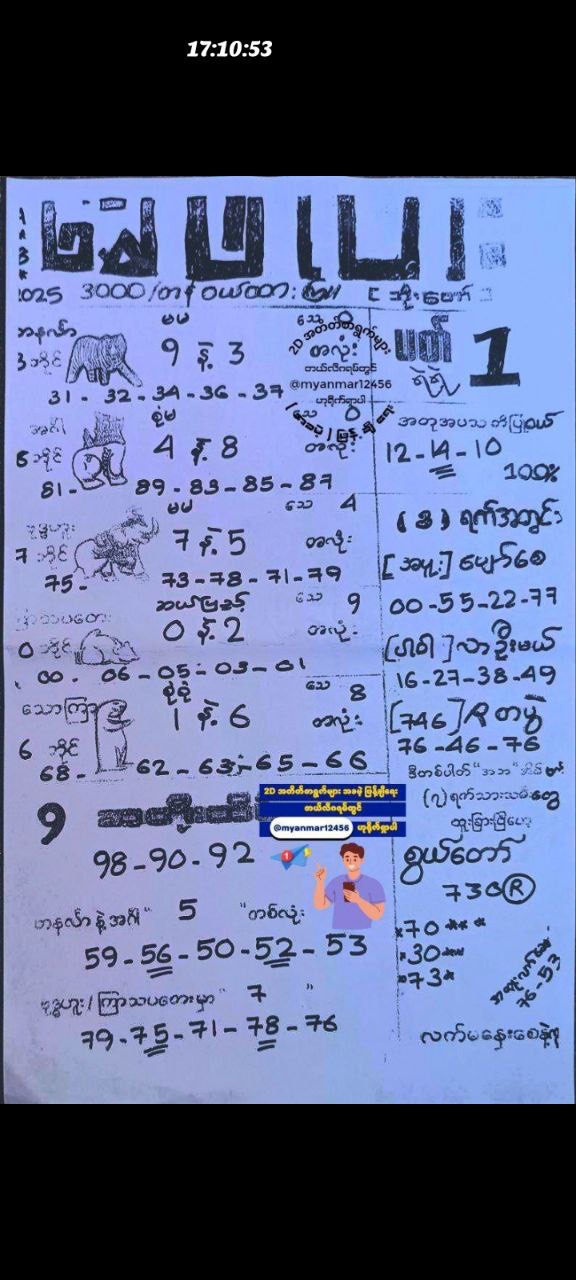 17:10:53
2025 3000/တန် ဝယ်ထား
တနင်္လာ
မမ
9 နဲ့ 3
သေ
အလုံး
3 ဘိုင်
31 - 32 - 34 - 36 - 37
2D အတိတ်စာရွက်များ
တယ်လီဂရမ်တွင်
@myanmar12456
ဟုရိုက်ရှာပါ
အင်္ဂါ
စုံမ
4 နဲ့ 8
အလုံး
8 ဘိုင်
81 - 89 - 83 - 85 - 87
ဗုဒ္ဓဟူး
မမ
7 နဲ့ 5
သေ 4
အလုံး
7 ဘိုင်
75 - 73 - 78 - 71 - 79
ကြာသပတေး
ဆယ်ပြည့်
0 နဲ့ 2
သေ 9
အလုံး
0 ဘိုင်
00 - 06 - 05 - 03 - 01
သောကြာ
စုံစုံ
1 နဲ့ 6
သေ 8
အလုံး
6 ဘိုင်
68 - 62 - 63 - 65 - 66
9
98 - 90 - 92
2D အတိတ်စာရွက်များ အခမဲ့ ဖြန့်ချိရေး
တယ်လီဂရမ်တွင်
@myanmar12456 ဟုရိုက်ရှာပါ
တနင်္လာ နဲ့ အင်္ဂါ " 5 " တစ်လုံး
59 - 56 - 50 - 52 - 53
ဗုဒ္ဓဟူး / ကြာသပတေးမှာ " 7 "
79 - 75 - 71 - 78 - 76
ပတ် 1
ရဲရဲ
12 - 14 - 10
100%
(3) ရက်အတွင်း
[အပူး] ပျော်စေ
00 - 55 - 22 - 77
[ပါဝါ] လာဦးမယ်
16 - 27 - 38 - 49
[746] R တပွဲ
76 - 46 - 76
ဒီတစ်ပါတ် "အဘ"
(၇) ရက်သားသမီးတွေ
ထူးခြားပြီပေ့
စွယ်တော်
730 Ⓡ
*70 ***
*30 **
*73 *
76-53